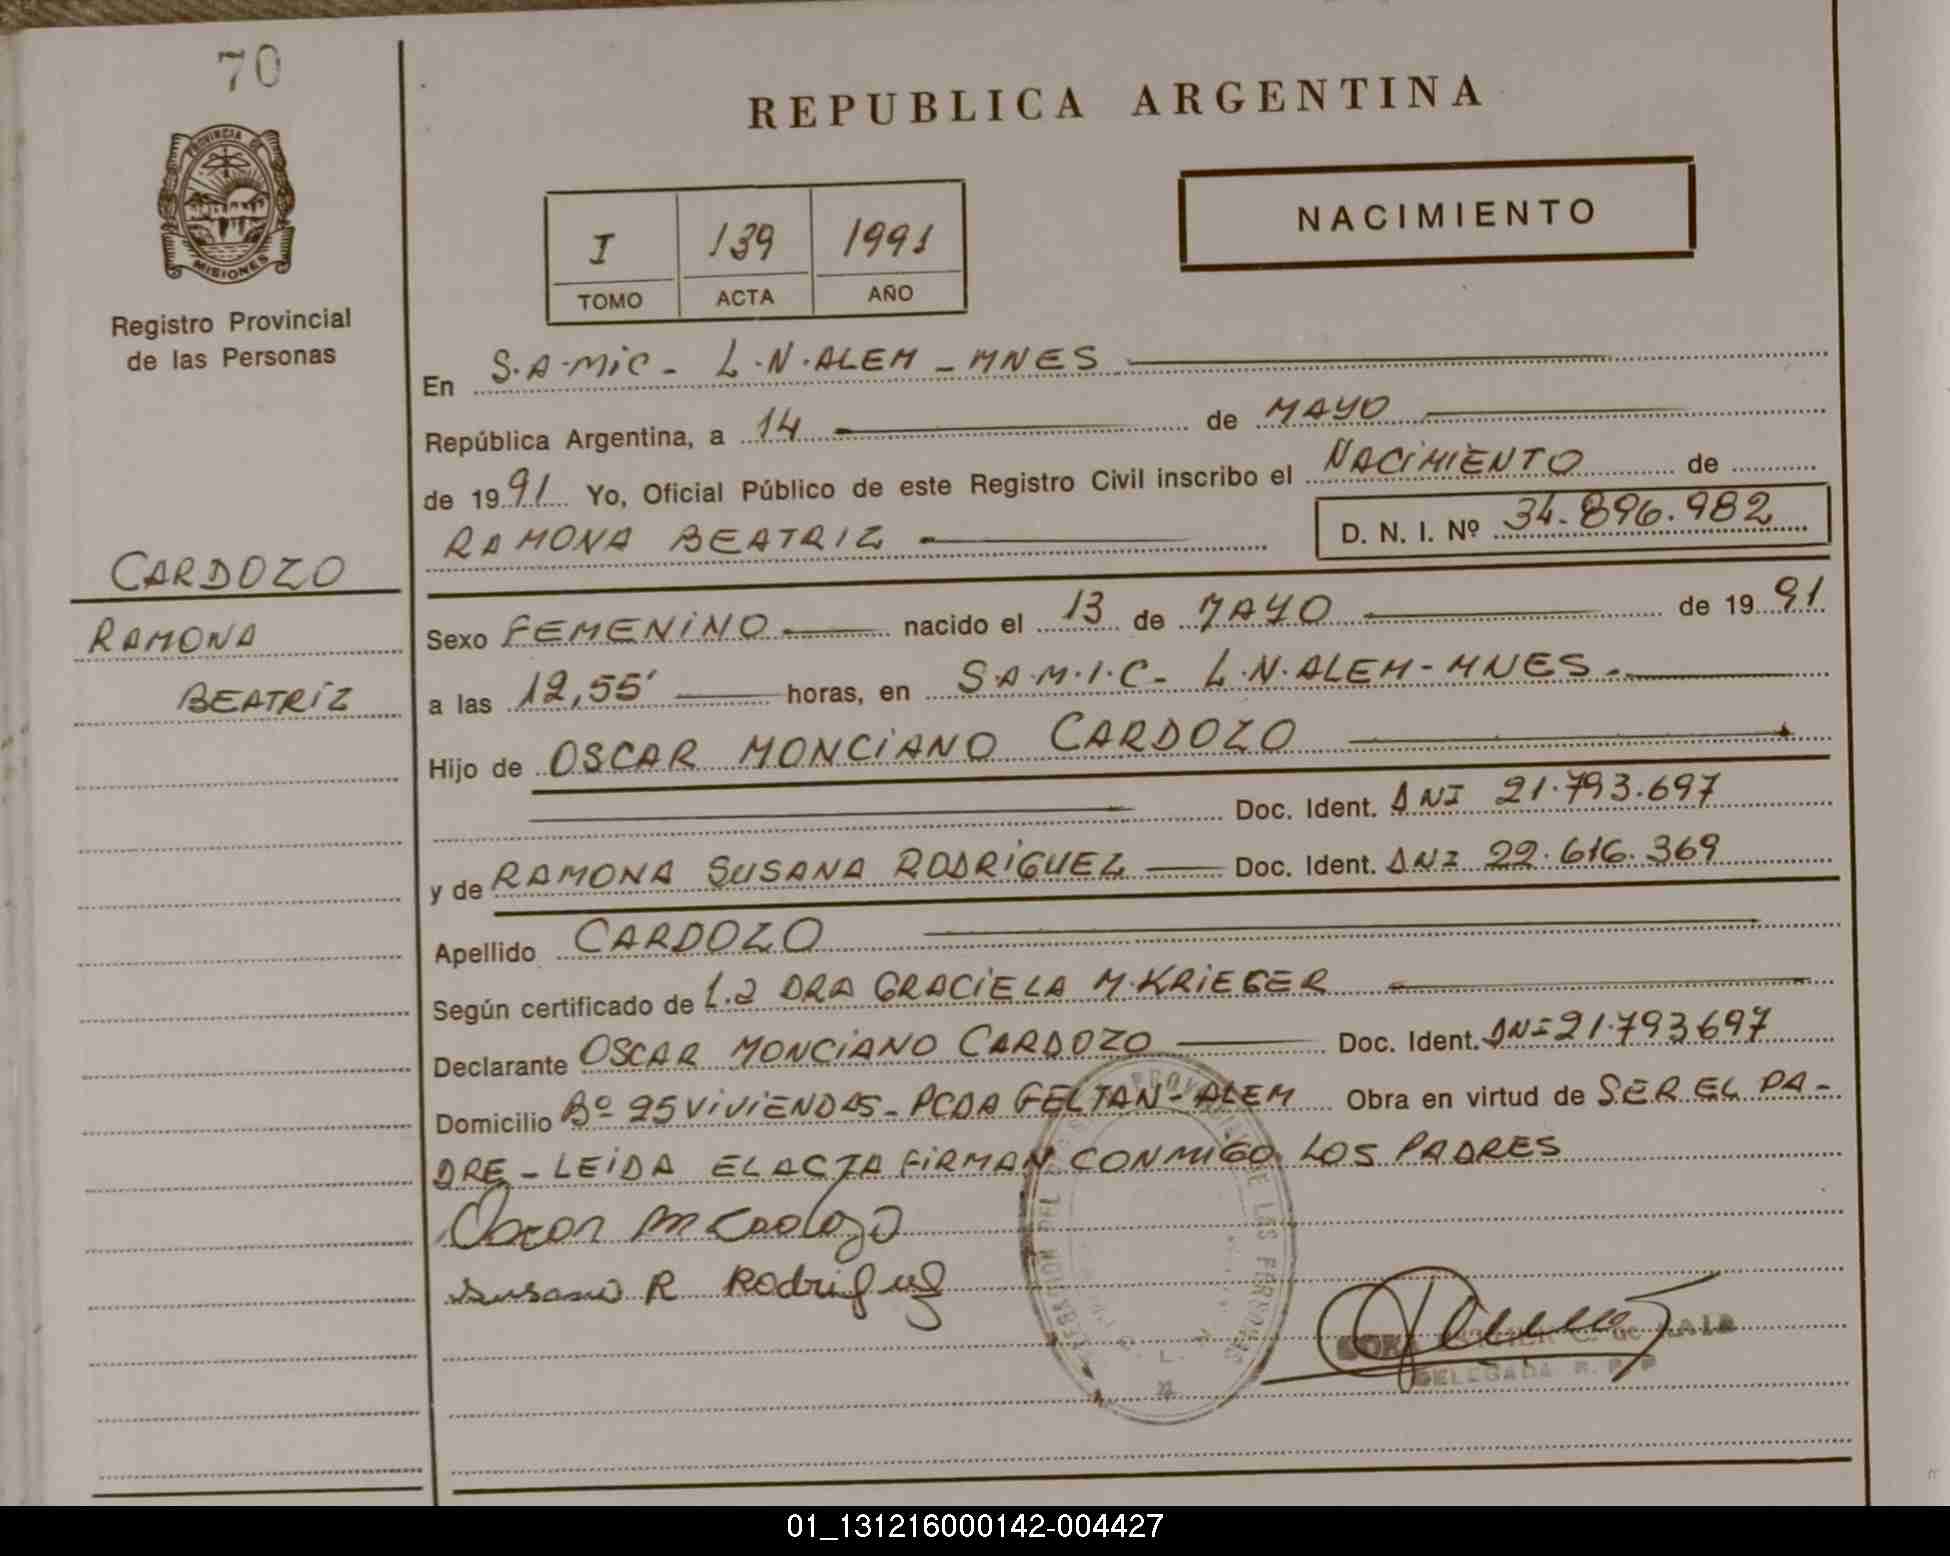 70
PROVINCIA DE
MISIONES
Registro Provincial
de las Personas
CARDOZO
RAMONA
BEATRIZ
REPUBLICA ARGENTINA
I 139 1991
TOMO ACTA AÑO
NACIMIENTO
En S.A.MIC- L.N.ALEM - MNES
República Argentina, a 14 de MAYO
de 1991 Yo, Oficial Público de este Registro Civil inscribo el NACIMIENTO de
RAMONA BEATRIZ D. N. I. Nº 34.896.982
Sexo FEMENINO nacido el 13 de MAYO de 1991
a las 12,55' horas, en S.A.M.I.C- L.N.ALEM-MNES.
Hijo de OSCAR MONCIANO CARDOZO
Doc. Ident. DNI 21.793.697
y de RAMONA SUSANA RODRIGUEZ Doc. Ident. DNI 22.616.369
Apellido CARDOZO
Según certificado de L.2 DRA GRACIELA M.KRIEGER
Declarante OSCAR MONCIANO CARDOZO Doc. Ident. DNI 21.793697
Domicilio Bº 25 VIVIENDAS- PCDA GELTAN- ALEM Obra en virtud de SER EL PA-
DRE - LEIDA EL ACTA FIRMAN CONMIGO LOS PADRES
Oscar M Cardozo
Susana R Rodriguez
DELEGADA R. P. P
01_131216000142-004427